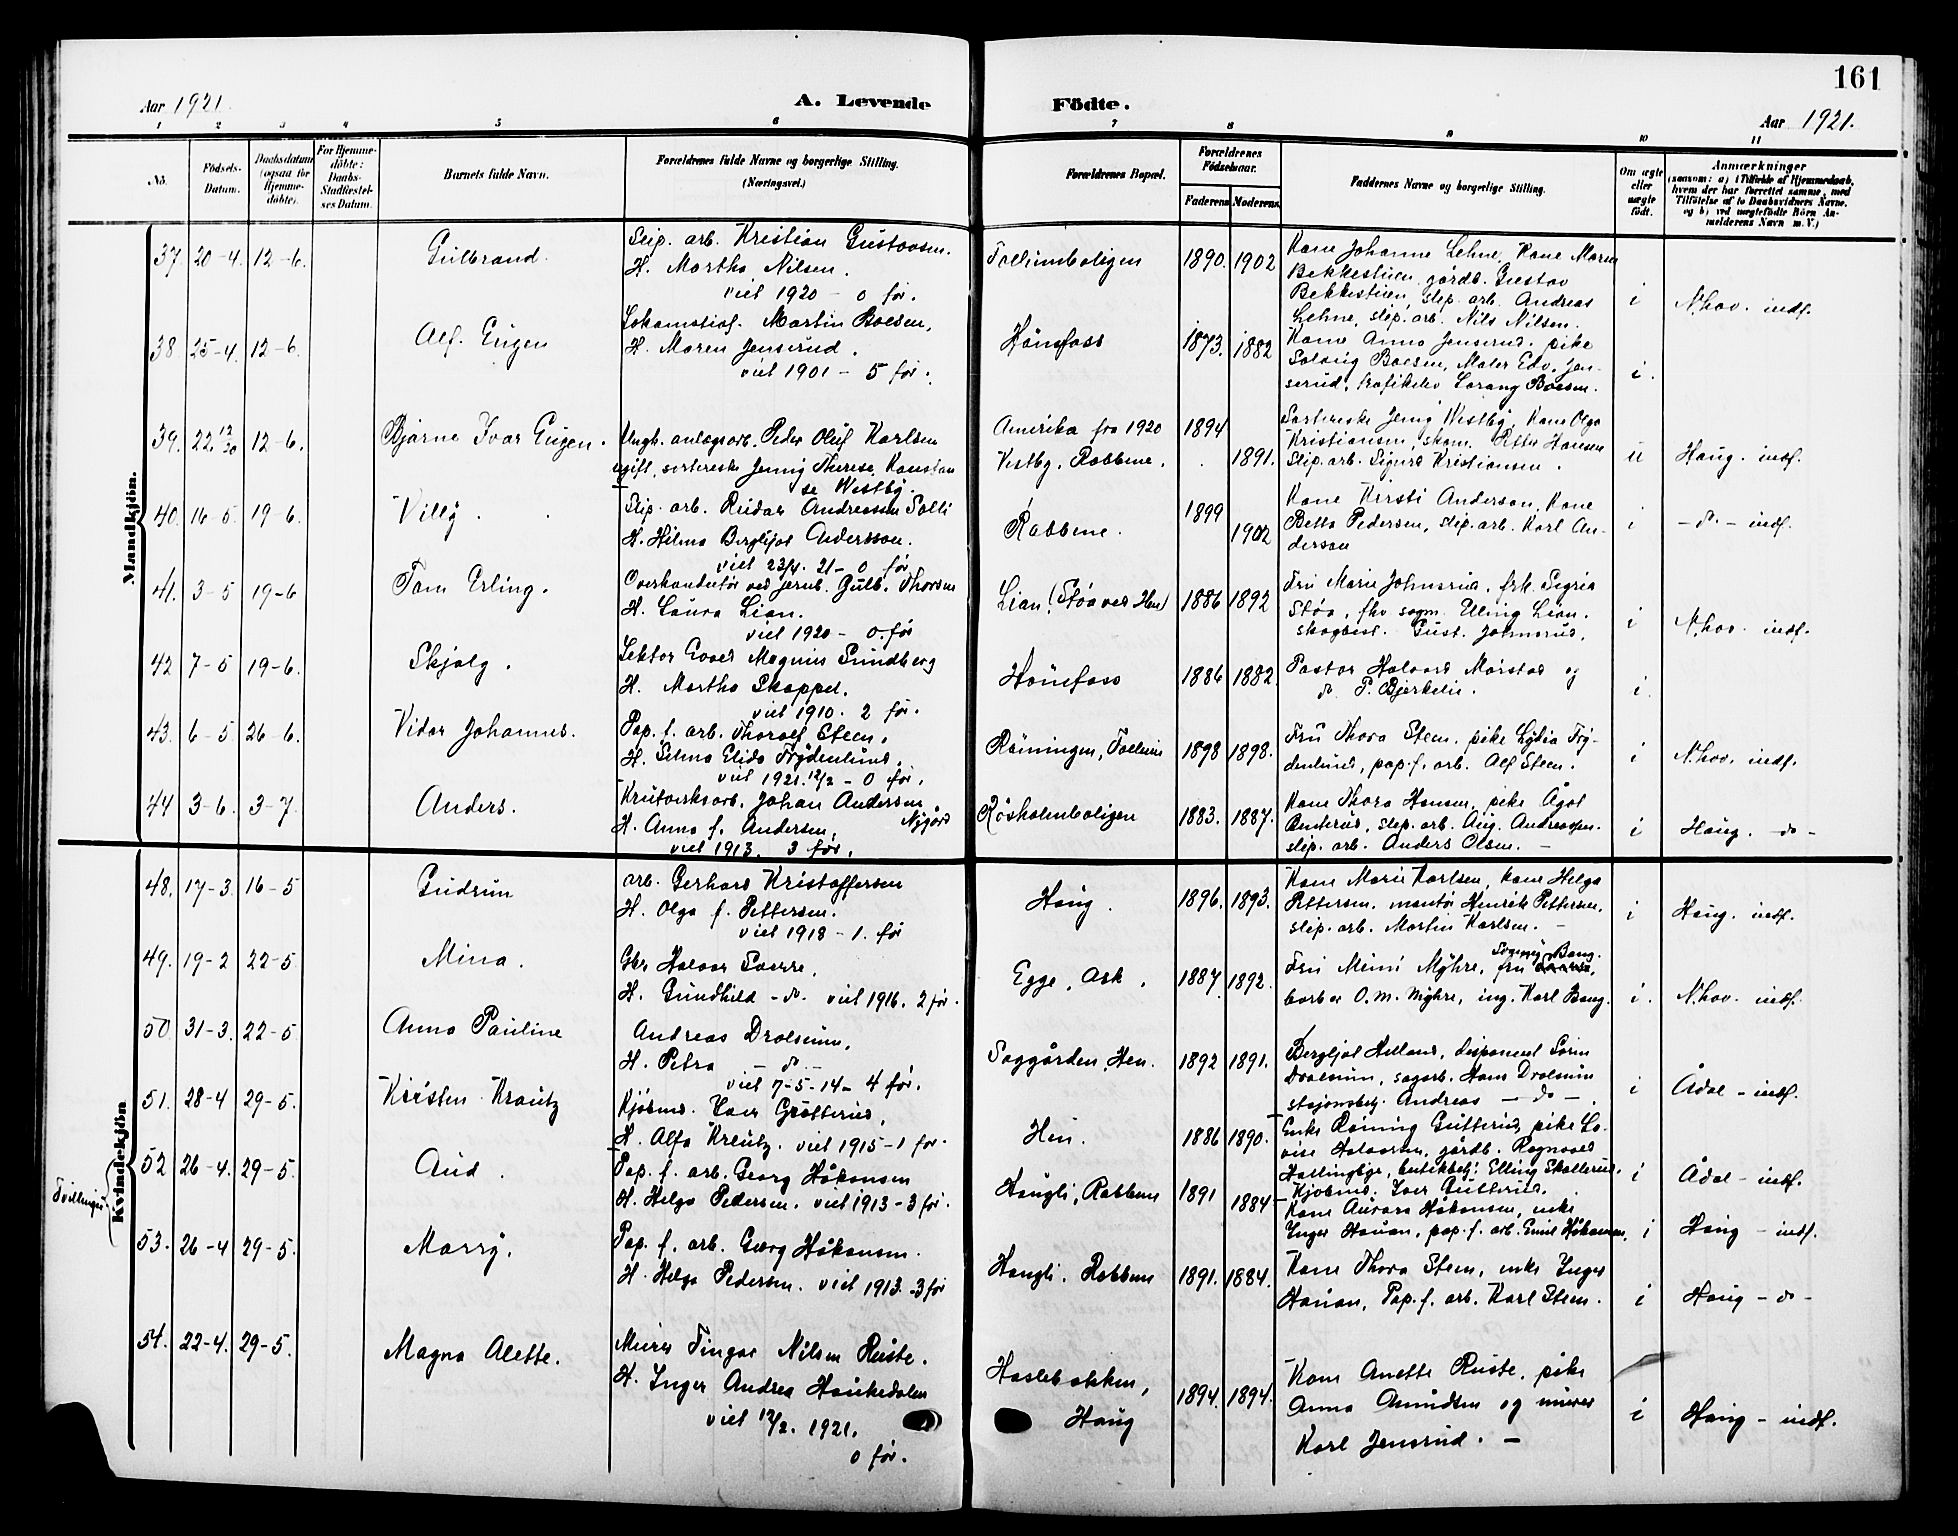 161
Aar 1921.
A. Levende
Födte.
Aar 1921.
1 2 3 4 5 6 7 8 9 10 11
No.
Födsels-
Datum.
Daabsdatum
(ogsaa for
Hjemme-
döbte).
For Hjemme-
döbte:
Daabs-
Stadfæstel-
ses Datum.
Barnets fulde Navn.
Forældrenes fulde Navne og borgerlige Stilling.
(Næringsvei.)
Forældrenes Bopæl.
Forældrenes
Födselsaar.
Faderens
Moderens
Faddernes Navne og borgerlige Stilling.
Om ægte
eller
uægte
födt.
Anmærkninger
(saasom: a) i Tilfælde af Hjemmedaab,
hvem der har forrettet samme, med
Tilföielse af to Daabsvidners Navne.
og b) ved uægtefödte Börn An-
melderens Navn m. V.)
Mandkjön.
37 20-4. 12-6.
Gulbrand.
Slip. arb. Kristian Gustavsen.
H. Martha Nilsen.
viet 1920 - 0 før.
Follumboligen
1890. 1902
Kone Johanne Lehne, Kone Maren
Bekkestuen, gårdb. Gustav
Bekkestuen, slip. arb. Andreas
Lehne, slip. arb. Nils Nilsen.
i
N.hov. indf.
38 25-4. 12-6.
Alf. Eugen
Lokomotivf. Martin Boesen,
H. Maren Jensrud.
viet 1901 - 5 før.
Hønefoss
1873. 1882
Kone Anna Jensrud. pike
Solveig Boesen, Maler Edv. Jen-
srud, trafikelev Lorang Boesen.
i.
39. 22 12/20 12-6.
Bjarne Ivar Eugen.
Ungk. anlægsarb. Peder Oluf Karlsen
ugift, sorterske Jenny Therese Konstan
se Westby.
Amerika fra 1920
Vestby, Rabbene.
1894
1891.
Sorterske Jenny Westby, Kone Olga
Kristiansen, skom. Petter Hansen
Slip. arb. Sigurd Kristiansen.
u
Haug. indf.
40. 16-5. 19-6.
Villy.
Slip. arb. Reidar Andreassen Solli
H. Hilma Bergljot Andersson.
viet 23/4. 21 - 0 før
Rabbene.
1899
1902
Kone Kirsti Anderson, Kone
Betta Pedersen, slip. arb. Karl An-
derson
i
- do. - indf.
41. 3-5 19-6
Tom Erling.
Overkonduktør ved jernb. Gulb. Thorsen
H. Laura Lian.
viet 1920 - 0 før
Lian (Støa ved Hen)
1886 1892
Fru Marie Johnsrud, frk. Sigrid
Støa, fhv sagm. Elling Lian.
skogbest. Gust. Johnsrud.
i
N.hov. indf.
42 7-5 19-6.
Skjalg.
Lektor Eivel Magnus Sundberg
H. Martha Skappel.
viet 1910. 2 før.
Hønefoss
1886 1882
Pastor Halvard Mårstad og
do. P. Bjerkelie.
i.
43. 6-5 26-6.
Vidar Johannes.
Pap. f. arb. Thoralf Steen,
H. Selma Elida Frydenlund,
viet 1921. 12/2 - 0 før.
Røiningen, Follum
1898 1898.
Fru Thora Steen, pike Lydia Fry-
denlund, pap. f. arb. Alf Steen.
i
N.hov. indf.
44 3-6. 3-7.
Anders.
Krutverksarb. Johan Andersen
Nygård
H. Anna f. Andersen,
viet 1913. 3 før.
Røsholmboligen
1883. 1887.
Kone Thora Hansen, pike Ågot
Buterud, slip. arb. Aug. Andreassen.
slip. arb. Anders Olsen. -
i
Haug. - do -
Kvindekjön
48. 17-3. 16-5
Gudrun
arb. Gerhard Kristoffersen
H. Olga f. Pettersen.
viet 1918 - 1. før
Haug.
1896. 1893.
Kone Marie Karlsen, kone Helga
Pettersen. montør Henrik Pettersen,
slip. arb. Martin Karlsen. -
i
Haug. indf.
49. 19-2 22-5
Mina.
Gbr Halvor Sverre.
H. Gundhild - do. viet 1916. 2 før.
Egge, Ask.
1887 1892.
Bang.
Fru Mimi Myhre, fru
barber O. M. Myhre, ing. Karl Bang.
i.
N.hov. indf.
50 31-3. 22-5
Anna Pauline
Andreas Drolsum,
H. Petra - do -
viet 7-5-14 - 4 før.
Saggården, Hen.
1892 1891.
Bergljot Helland, disponent Søren
Drolsum, sagarb. Hans Drolsum
stasjonsbetj. Andreas - do -.
i
Ådal - indf.
51. 28-4 29-5.
Kirsten Krautz
Kjøbmd. Iver Gutterud,
H. Alfa Kreutz. viet 1915 - 1 før.
Hen.
1886 1890.
Enke Røning Gutterud, pike Lo-
vise Halvorsen, gårdb. Ragnvald
Hallingbye, butikbetj. Elling Skollerud.
Kjøbmd. Iver Gutterud.
i
Ådal - indf.
Tvillinger
52 26-4. 29-5.
Aud.
Pap. f. arb. Georg Håkonsen
H. Helga Pedersen. viet 1913 - 3 før.
Haugli, Rabbene
1891 1884
Kone Aurora Håkonsen, enke
Inger Hauan, pap. f. arb. Emil Håkonsen.
i
Haug - indf.
53. 26-4 29-5.
Marry.
Pap. f. arb. Georg Håkonsen.
H. Helga Pedersen. viet 1913. - 3 før
Haugli. Rabbene
1891. 1884.
Kone Thora Steen, enke Inger
Hauan, Pap. f. arb. Karl Steen.
i
Haug - do -
54. 22-4. 29-5.
Magna Alette.
Murer Fingar Nilsen Ruste.
H. Inger Andrea Haukedalen
viet 12/2. 1921.
0 før.
Haslebakken,
Haug
1894. 1894.
Kone Anette Ruste, pike
Anna Amundsen og murer
Karl Jensrud. -
i
Haug - indf.